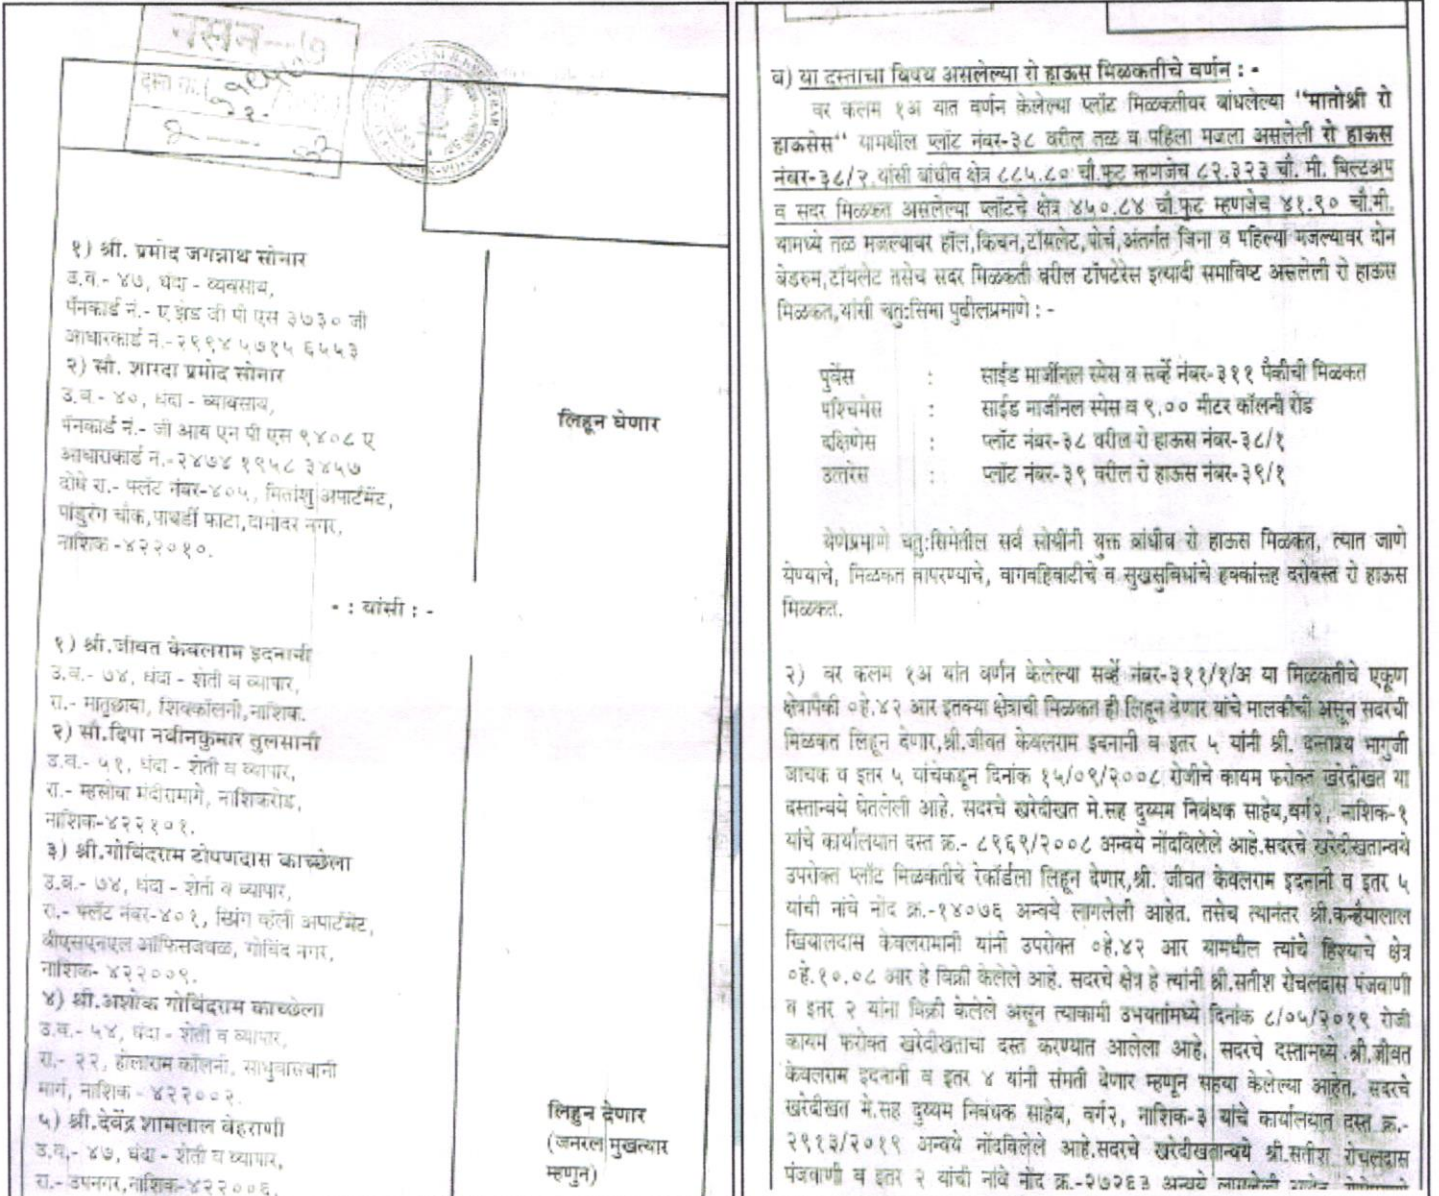 नसन
दस्त क्र.
१) श्री. प्रमोद जगन्नाथ सोनार
उ.व.- ४७, धंदा - व्यवसाय,
पॅनकार्ड नं.- ए झेड जी पी एस ३७३० जी
आधारकार्ड नं.-२९९४ ५७१५ ६५५३
२) सौ. शारदा प्रमोद सोनार
उ.व.- ४०, धंदा - व्यावसाय,
पॅनकार्ड नं.- जी आय एन पी एस ९४०८ ए
आधाराकार्ड नं.-२४७४ १९५८ ३४५७
दोघे रा.- फ्लॅट नंबर-४०५, मितांशु अपार्टमेंट,
पांडुरंग चौक,पाथर्डी फाटा,दामोदर नगर,
नाशिक -४२२०१०.
लिहून घेणार
- : यांसी : -
१) श्री.जीवत केवलराम इदनानी
उ.व.- ७४, धंदा - शेती व व्यापार,
रा.- मातृछाया, शिवकॉलनी,नाशिक.
२) सौ.दिपा नवीनकुमार तुलसानी
उ.व.- ५१, धंदा - शेती व व्यापार,
रा.- म्हसोबा मंदीरामागे, नाशिकरोड,
नाशिक-४२२१०१.
३) श्री.गोबिंदराम टोपणदास काच्छेला
उ.व.- ७४, धंदा - शेती व व्यापार,
रा.- फ्लॅट नंबर-४०१, स्प्रिंग व्हॅली अपार्टमेंट,
बीएसएनएल ऑफिसजवळ, गोविंद नगर,
नाशिक- ४२२००९.
४) श्री.अशोक गोबिंदराम काच्छेला
उ.व.- ५४, धंदा - शेती व व्यापार,
रा.- २२, होलाराम कॉलनी, साधुवासवानी
मार्ग, नाशिक - ४२२००२.
५) श्री.देवेंद्र शामलाल बेहराणी
उ.व.- ४७, धंदा - शेती व व्यापार,
रा.- उपनगर,नाशिक-४२२००६.
लिहुन देणार
(जनरल मुखत्यार
म्हणुन)
ब) या दस्ताचा विषय असलेल्या रो हाऊस मिळकतीचे वर्णन : -
वर कलम १अ यात वर्णन केलेल्या प्लॉट मिळकतीवर बांधलेल्या "मातोश्री रो
हाऊसेस" यामधील प्लॉट नंबर-३८ वरील तळ व पहिला मजला असलेली रो हाऊस
नंबर-३८/२ यांसी बांधीव क्षेत्र ८८५.८० चौ.फुट म्हणजेच ८२.३२३ चौ. मी. बिल्टअप
व सदर मिळकत असलेल्या प्लॉटचे क्षेत्र ४५०.८४ चौ.फुट म्हणजेच ४१.९० चौ.मी.
यामध्ये तळ मजल्यावर हॉल,किचन,टॉयलेट,पोर्च,अंतर्गत जिना व पहिल्या मजल्यावर दोन
बेडरुम,टॉयलेट तसेच सदर मिळकती वरील टॉपटेरेस इत्यादी समाविष्ट असलेली रो हाऊस
मिळकत,यांसी चतु:सिमा पुढीलप्रमाणे : -
पुर्वेस : साईड मार्जीनल स्पेस व सर्व्हे नंबर-३११ पैकीची मिळकत
पश्चिमेस : साईड मार्जीनल स्पेस व ९.०० मीटर कॉलनी रोड
दक्षिणेस : प्लॉट नंबर-३८ वरील रो हाऊस नंबर-३८/१
उत्तरेस : प्लॉट नंबर-३९ वरील रो हाऊस नंबर-३९/१
येणेप्रमाणे चतु:सिमेतील सर्व सोयींनी युक्त बांधीव रो हाऊस मिळकत, त्यात जाणे
येण्याचे, मिळकत वापरण्याचे, वागवहिवाटीचे व सुखसुविधांचे हक्कांसह दरोबस्त रो हाऊस
मिळकत.
२) वर कलम १अ यांत वर्णन केलेल्या सर्व्हे नंबर-३११/१/अ या मिळकतीचे एकूण
क्षेत्रापैकी ०हे.४२ आर इतक्या क्षेत्राची मिळकत ही लिहून देणार यांचे मालकीची असून सदरची
मिळकत लिहून देणार,श्री.जीवत केवलराम इदनानी व इतर ५ यांनी श्री. दत्तात्रय भागुजी
जाचक व इतर ५ यांचेकडून दिनांक १५/०९/२००८ रोजीचे कायम फरोक्त खरेदीखत या
दस्तान्वये घेतलेली आहे. सदरचे खरेदीखत मे.सह दुय्यम निबंधक साहेब,वर्ग२, नाशिक-१
यांचे कार्यालयात दस्त क्र.- ८९६९/२००८ अन्वये नोंदविलेले आहे.सदरचे खरेदीखतान्वये
उपरोक्त प्लॉट मिळकतीचे रेकॉर्डला लिहून देणार,श्री. जीवत केवलराम इदनानी व इतर ५
यांची नांवे नोंद क्र.-१४०७६ अन्वये लागलेली आहेत. तसेच त्यानंतर श्री.कन्हैयालाल
खियालदास केवलरामानी यांनी उपरोक्त ०हे.४२ आर यामधील त्यांचे हिश्याचे क्षेत्र
०हे.१०.०८ आर हे विक्री केलेले आहे. सदरचे क्षेत्र हे त्यांनी श्री.सतीश रोचलदास पंजवाणी
व इतर २ यांना विक्री केलेले असून त्याकामी उभयतांमध्ये दिनांक ८/०५/२०१९ रोजी
कायम फरोक्त खरेदीखताचा दस्त करण्यात आलेला आहे. सदरचे दस्तामध्ये श्री.जीवत
केवलराम इदनानी व इतर ४ यांनी संमती देणार म्हणून सहया केलेल्या आहेत. सदरचे
खरेदीखत मे.सह दुय्यम निबंधक साहेब, वर्ग२, नाशिक-३ यांचे कार्यालयात दस्त क्र.-
२९१३/२०१९ अन्वये नोंदविलेले आहे.सदरचे खरेदीखतान्वये श्री.सतीश रोचलदास
पंजवाणी व इतर २ यांची नांवे नोंद क्र.-२७२६३ अन्वये लागलेली आहेत.